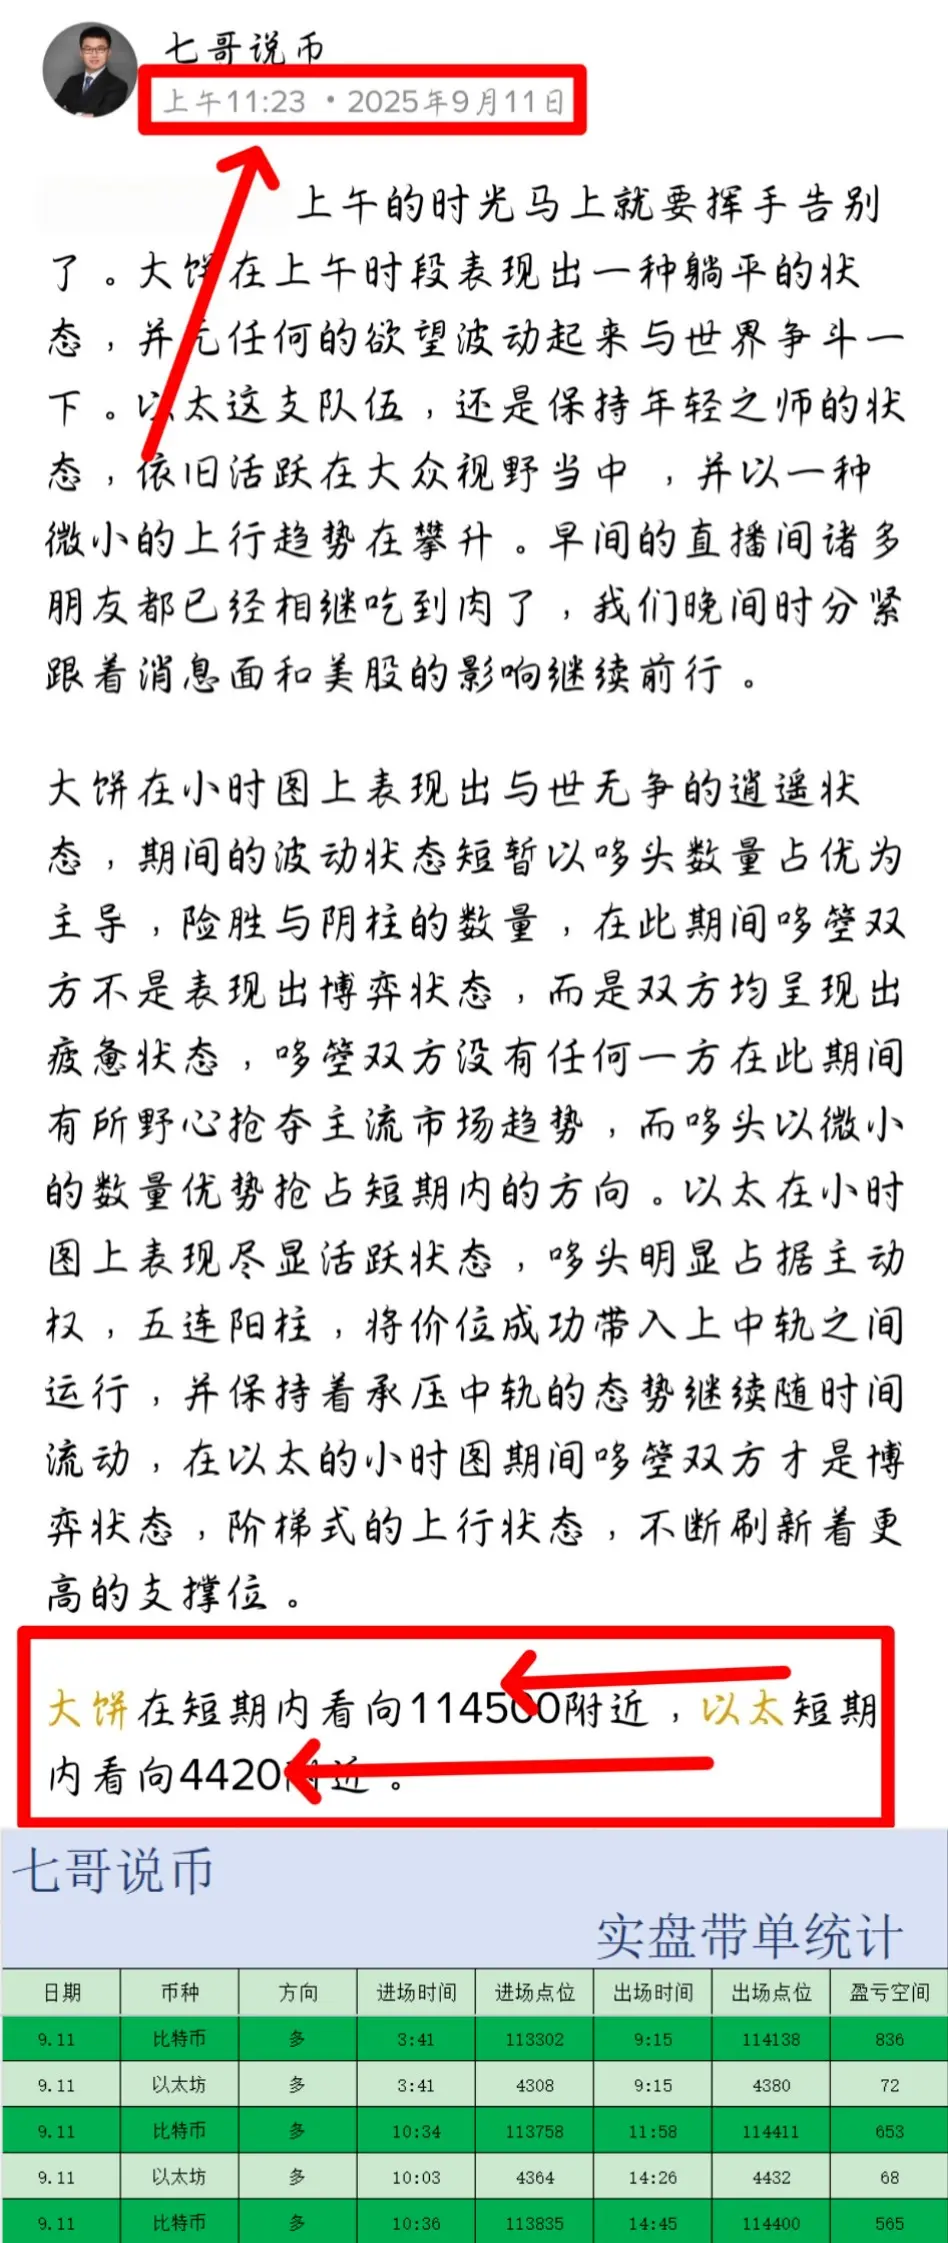 七哥说币
上午11:23 · 2025年9月11日
上午的时光马上就要挥手告别
了。大饼在上午时段表现出一种躺平的状
态，并无任何的欲望波动起来与世界争斗一
下。以太这支队伍，还是保持年轻之师的状
态，依旧活跃在大众视野当中，并以一种
微小的上行趋势在攀升。早间的直播间诸多
朋友都已经相继吃到肉了，我们晚间时分紧
跟着消息面和美股的影响继续前行。
大饼在小时图上表现出与世无争的逍遥状
态，期间的波动状态短暂以哆头数量占优为
主导，险胜与阴柱的数量，在此期间哆箜双
方不是表现出博弈状态，而是双方均呈现出
疲惫状态，哆箜双方没有任何一方在此期间
有所野心抢夺主流市场趋势，而哆头以微小
的数量优势抢占短期内的方向。以太在小时
图上表现尽显活跃状态，哆头明显占据主动
权，五连阳柱，将价位成功带入上中轨之间
运行，并保持着承压中轨的态势继续随时间
流动，在以太的小时图期间哆箜双方才是博
弈状态，阶梯式的上行状态，不断刷新着更
高的支撑位。
大饼在短期内看向114500附近，以太短期
内看向4420附近。
七哥说币
实盘带单统计
日期 币种 方向 进场时间 进场点位 出场时间 出场点位 盈亏空间
9.11 比特币 多 3:41 113302 9:15 114138 836
9.11 以太坊 多 3:41 4308 9:15 4380 72
9.11 比特币 多 10:34 113758 11:58 114411 653
9.11 以太坊 多 10:03 4364 14:26 4432 68
9.11 比特币 多 10:36 113835 14:45 114400 565